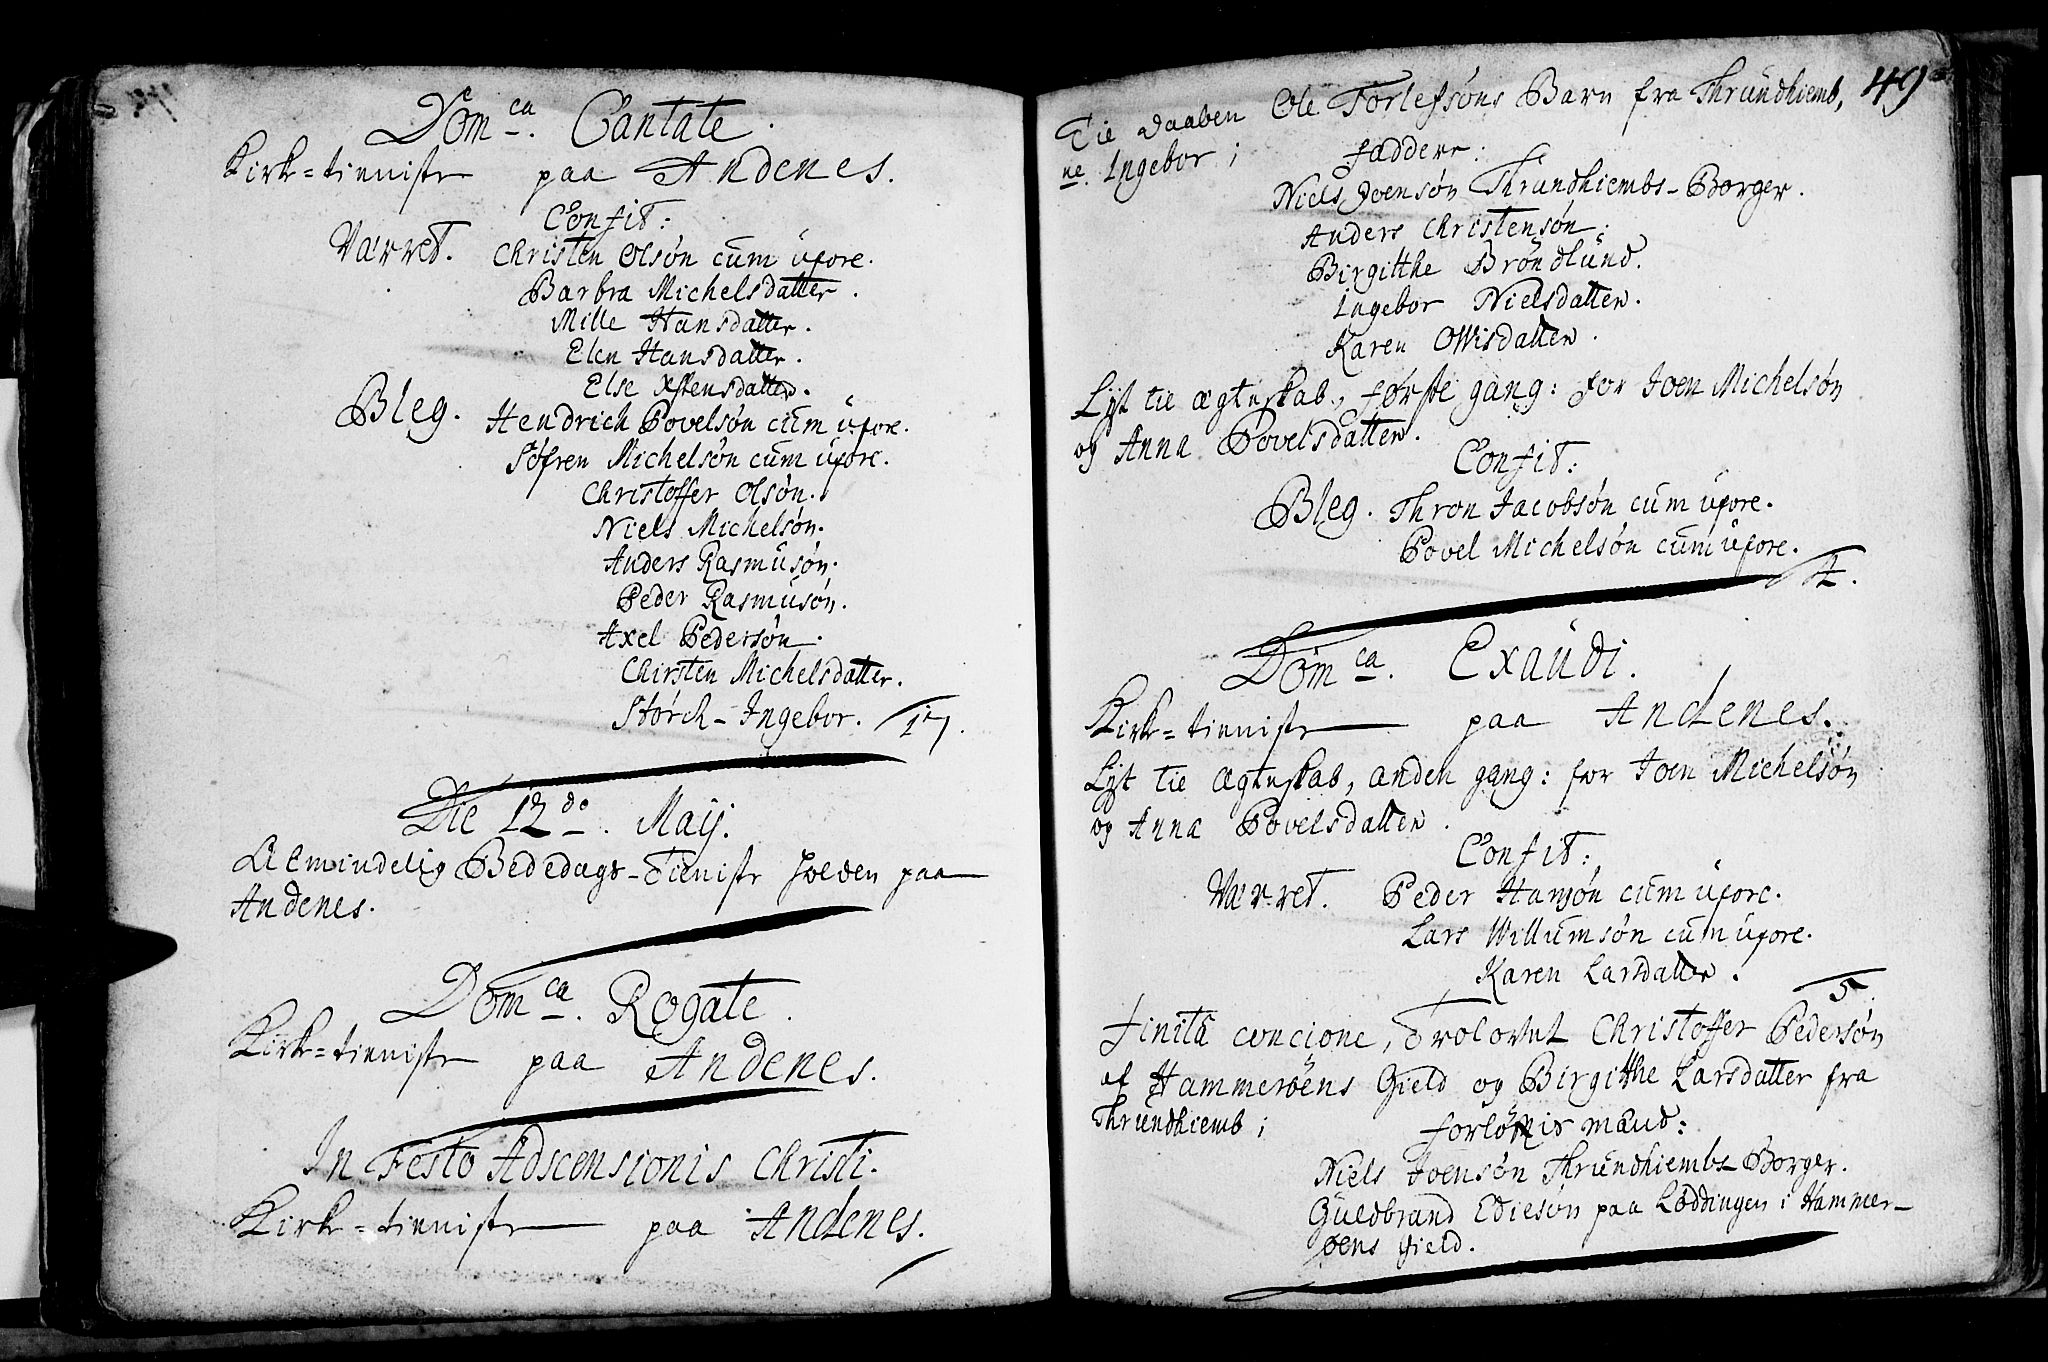 Dom ca. Cantate.
Kirk=tieniste paa Andenes.
Confit:
Værret. Christen Olsøn cum uxore.
Barbra Michelsdatter.
Mille Hansdatter.
Elen Hansdatter.
Else Xstensdatter.
Bleg. Hendrich Povelsøn cum uxore.
Søfren Michelsøn cum uxore.
Christoffer Olsøn.
Niels Michelsøn.
Anders Rasmusøn.
Peder Rasmusøn.
Axel Pedersøn.
Chirsten Michelsdatter.
Størch-Ingebor. 17.
Die 12 do. Maij.
Almindelig Bededags-Tieniste holden paa
Andenes.
Dom ca. Rogate.
Kirk=tieniste paa Andenes.
In Festo Adscensionis Christi.
Kirk=tieniste paa Andenes.
49
Til Daaben Ole Torlefsøns Barn fra Thrundhiemb,
ne. Ingebor;
Faddere:
Niels Joensøn Thrundhiembs-Borger.
Anders Christensøn.
Birgitthe Brøndlund.
Ingebor Nielsdatter.
Karen Olvisdatter.
Lyst til ægteskab, første gang: for Joen Michelsøn
og Anna Povelsdatter.
Confit:
Bleg. Thron Jacobsøn cum uxore.
Povel Michelsøn cum uxore.
4.
Dom ca. Exaudi.
Kirk=tieniste paa Andenes.
Lyst til ægteskab, anden gang: for Joen Michelsøn
og Anna Povelsdatter.
Confit:
Værret. Peder Hansøn cum uxore.
Lars Willumsøn cum uxore.
Karen Larsdatter.
5.
Finita concione, Trolovet Christoffer Pedersøn
af Hammerøens Gield og Birgitthe Larsdatter fra
Thrundhiemb;
Forlovers mænd:
Niels Joensøn Thrundhiembs-Borger.
Guldbrand Edisøn paa Løddingen i Hammer-
øens Gield.